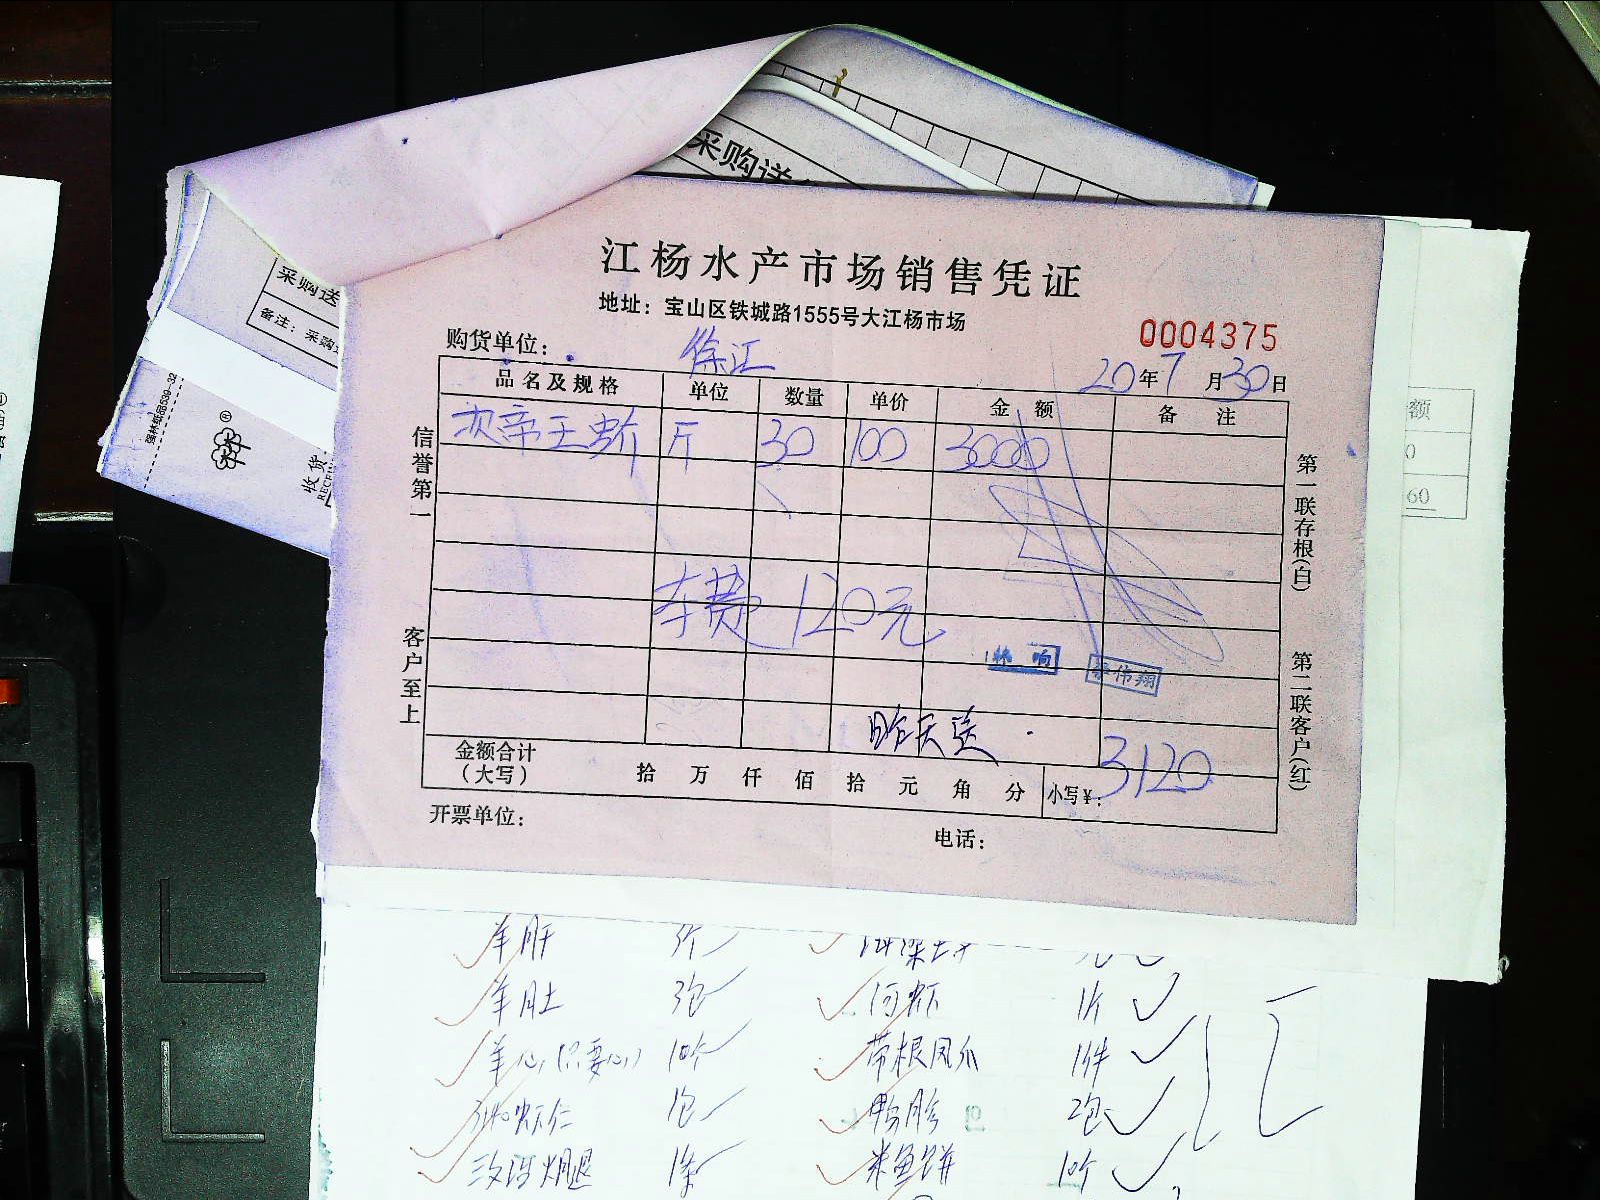 采购送
江杨水产市场销售凭证
地址：宝山区铁城路1555号大江杨市场
0004375
购货单位： 徐汇
20年7月30日
品名及规格 单位 数量 单价 金额 备注
次帝王蚧 斤 30 100 3000
车费 120元
昨天送
金额合计（大写） 拾 万 仟 佰 拾 元 角 分 小写¥： 3120
开票单位： 电话：
信誉第一
客户至上
第一联存根(白)
第二联客户(红)
采购送
备注：采购
收货
额
0
60
羊肝 3个
羊肚 3包 河虾 1斤
羊心(只要心) 10个 带根凤爪 1件
虾仁 1包 鸭胗 2包
火腿 1条 米鱼饼 10个